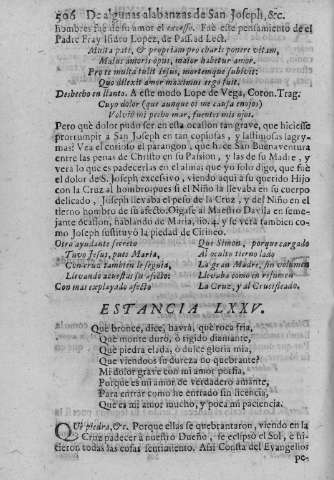 506 De algunas alabanzas de San Joseph, &c.
hombres fue de su amor el excesso. Fue este pensamiento de el
Padre Fray Isidro Lopez, de Pass.
Multa pati, & propriam pro charis ponere vitam,
Maius amoris opus, maior habetur amor.
Pro te multa tulit Iesus, mortemque subivit:
Quo dilexit amor maximus ergo fuit.
Deshecho en llanto. A este modo Lope de Vega, Coron. Trag.
Cuyo dolor (que aunque oi me causa enojos)
Volviò mi pecho mar, fuentes mis ojos.
Pero què dolor pudo ser en esta ocasion tan grave, que hiciesse
prorrumpir à San Joseph en tan copiosas, y lastimosas lagry-
mas? Vea el curioso el parangon, que hace San Buenaventura
entre las penas de Christo en su Passion, y las de su Madre, y
verà lo que es padecerlas en el alma; que yo solo digo, que fuè
el dolor de S. Joseph excessivo, viendo aqui à su querido Hijo
con la Cruz al hombro: pues si el Niño la llevaba en su cuerpo
delicado, Joseph llevaba el peso de la Cruz, y del Niño en el
tierno hombro de su afecto. Oigase al Maestro Davila en seme-
jante ocasion, hablando de Maria, y se verà tambien co-
mo Joseph sustituyò la piedad de Cirineo.
Otro ayudante secreto
Tuvo Jesus, pues Maria,
Con cruz tambien le seguia,
Llevando acuestas su afecto:
Con mas explayado afecto
Que Simon, porque cargado
Al oculto tierno lado
La gran Madre, sin volumen
Llevaba como in resumen
La Cruz, y al Crucificado.
ESTANCIA LXXV.
Què bronce, dice, havrà, què roca fria,
Què monte duro, ò rigido diamante,
Què piedra elada, ò dulce gloria mia,
Que viendo su dureza no quebrante?
Mi dolor grave con mi amor porfia,
Porque es mi amor de verdadero amante,
Para entrar como he entrado sin licencia,
Que es mi amor mucho, y poca mi paciencia.
QUè piedra, &c. Porque ellas se quebrantaron, viendo en la
Cruz padecer à nuestro Dueño, se eclipsò el Sol, è hi-
cieron todas las cosas sentimiento. Assi consta del Evangelio:
pe-